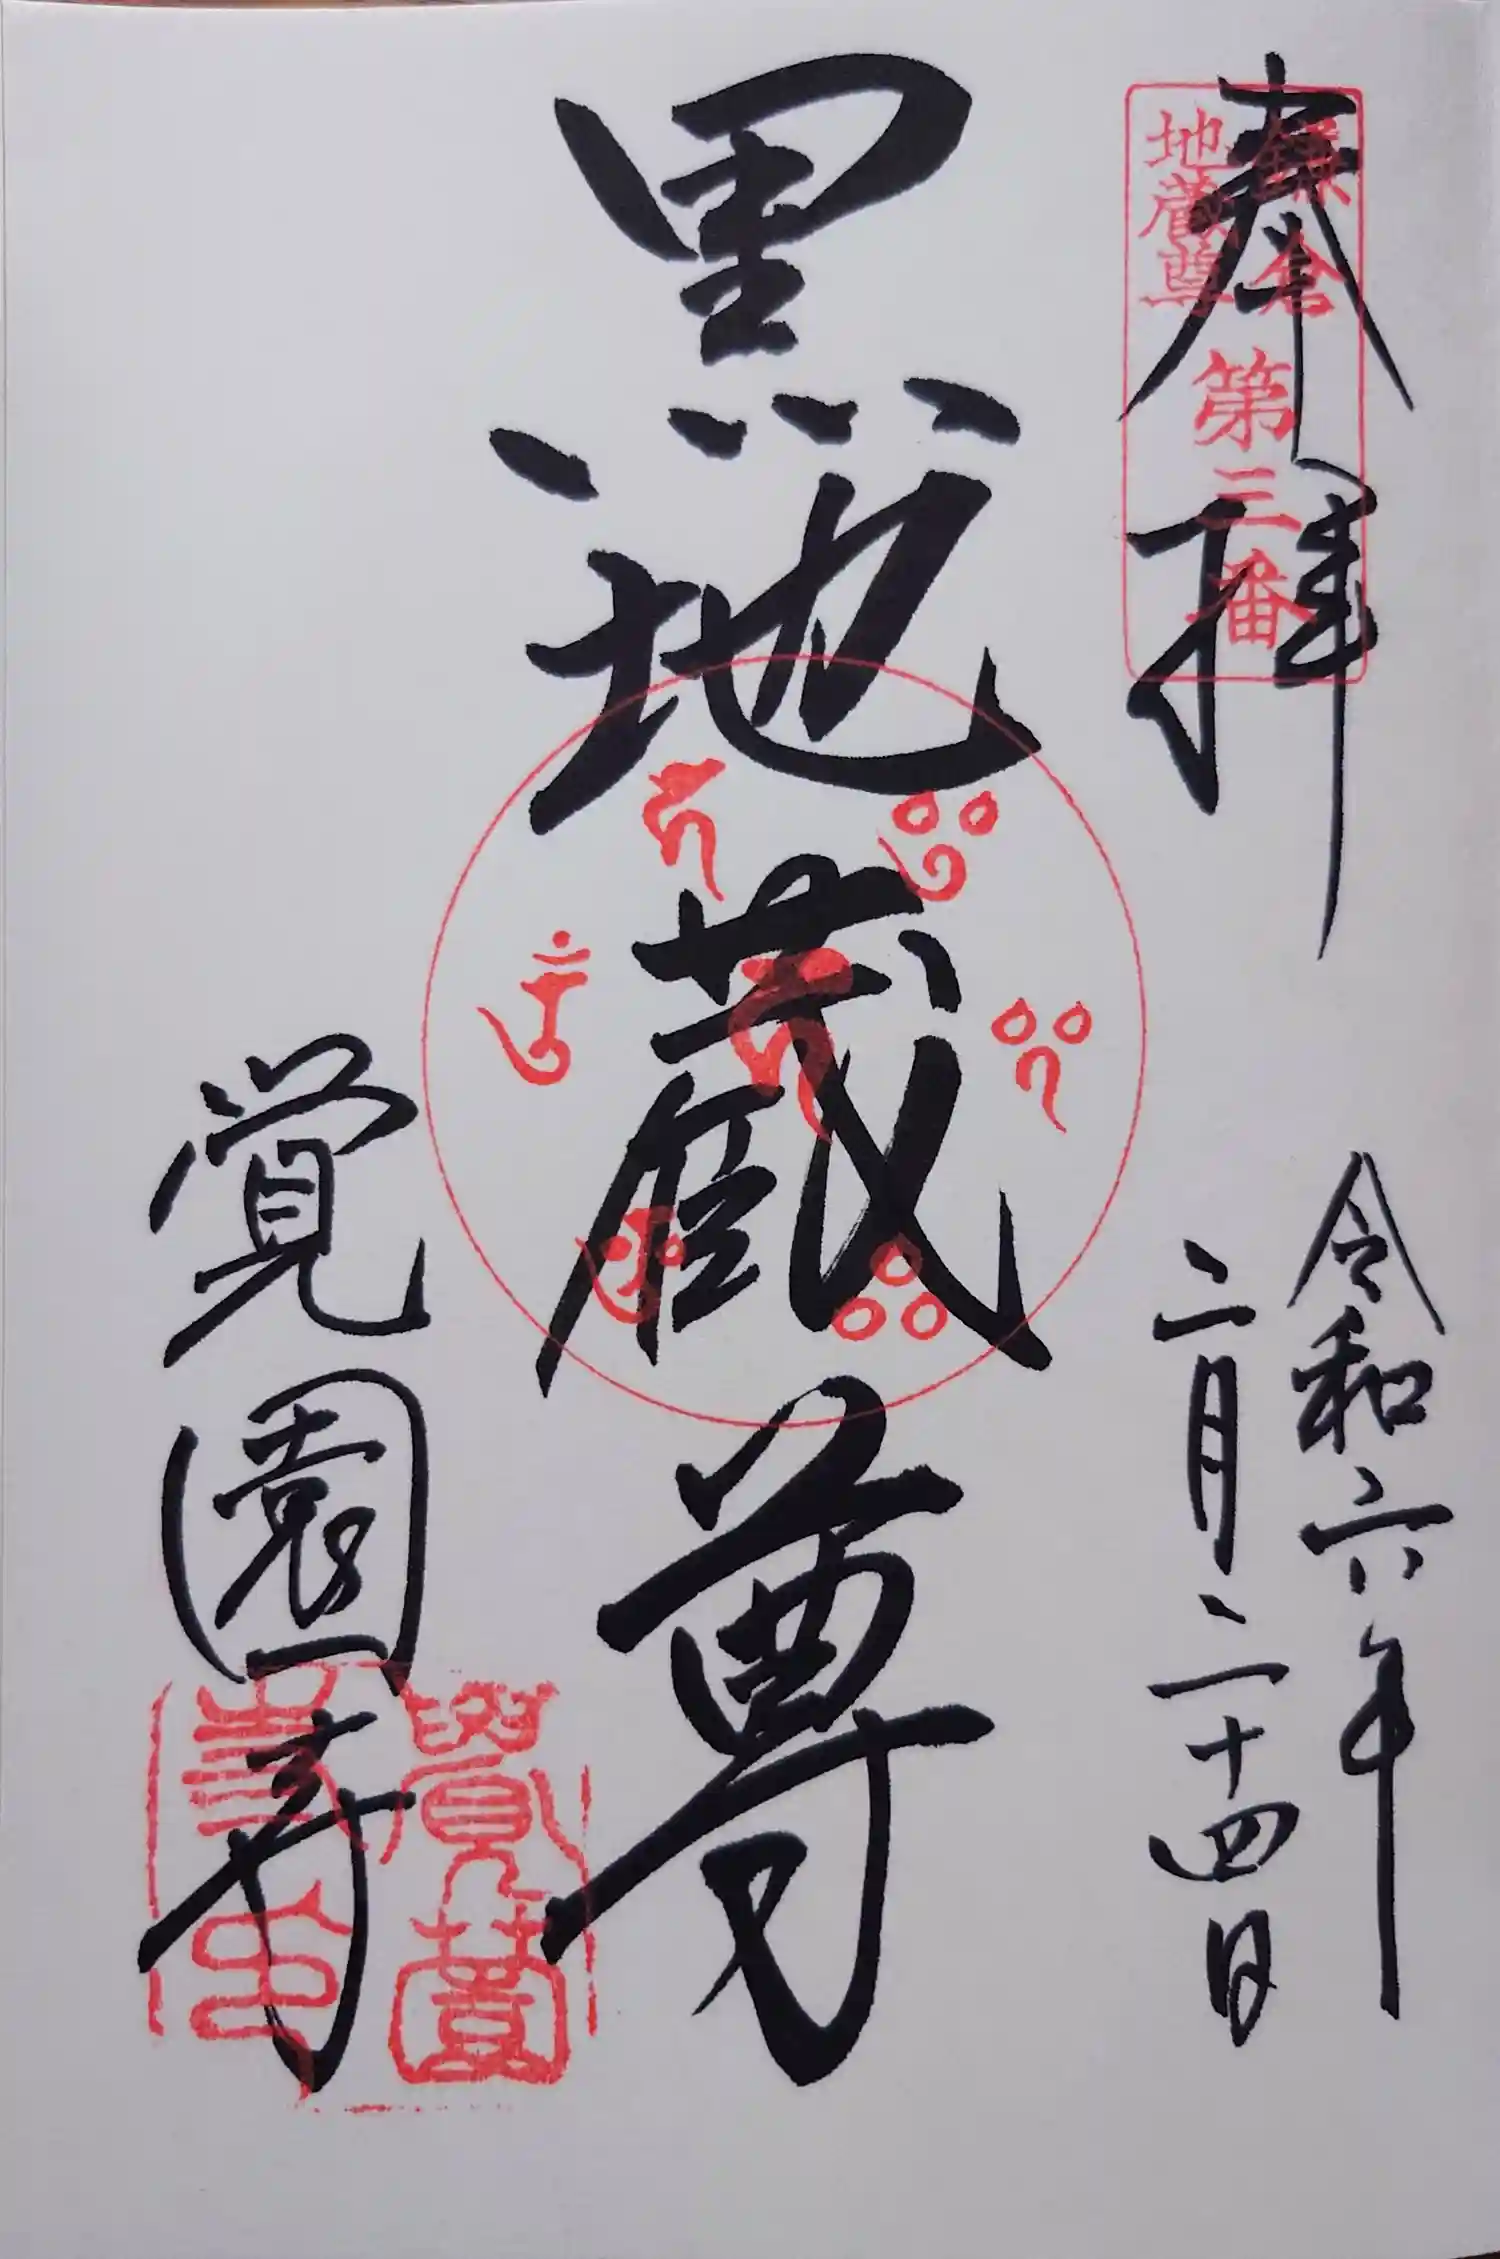 奉拝
鎌倉
地蔵尊
第三番
令和六年
二月二十四日
黒地蔵尊
覚園寺